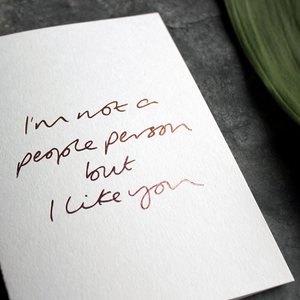 I'm not a
people person
but
I like you